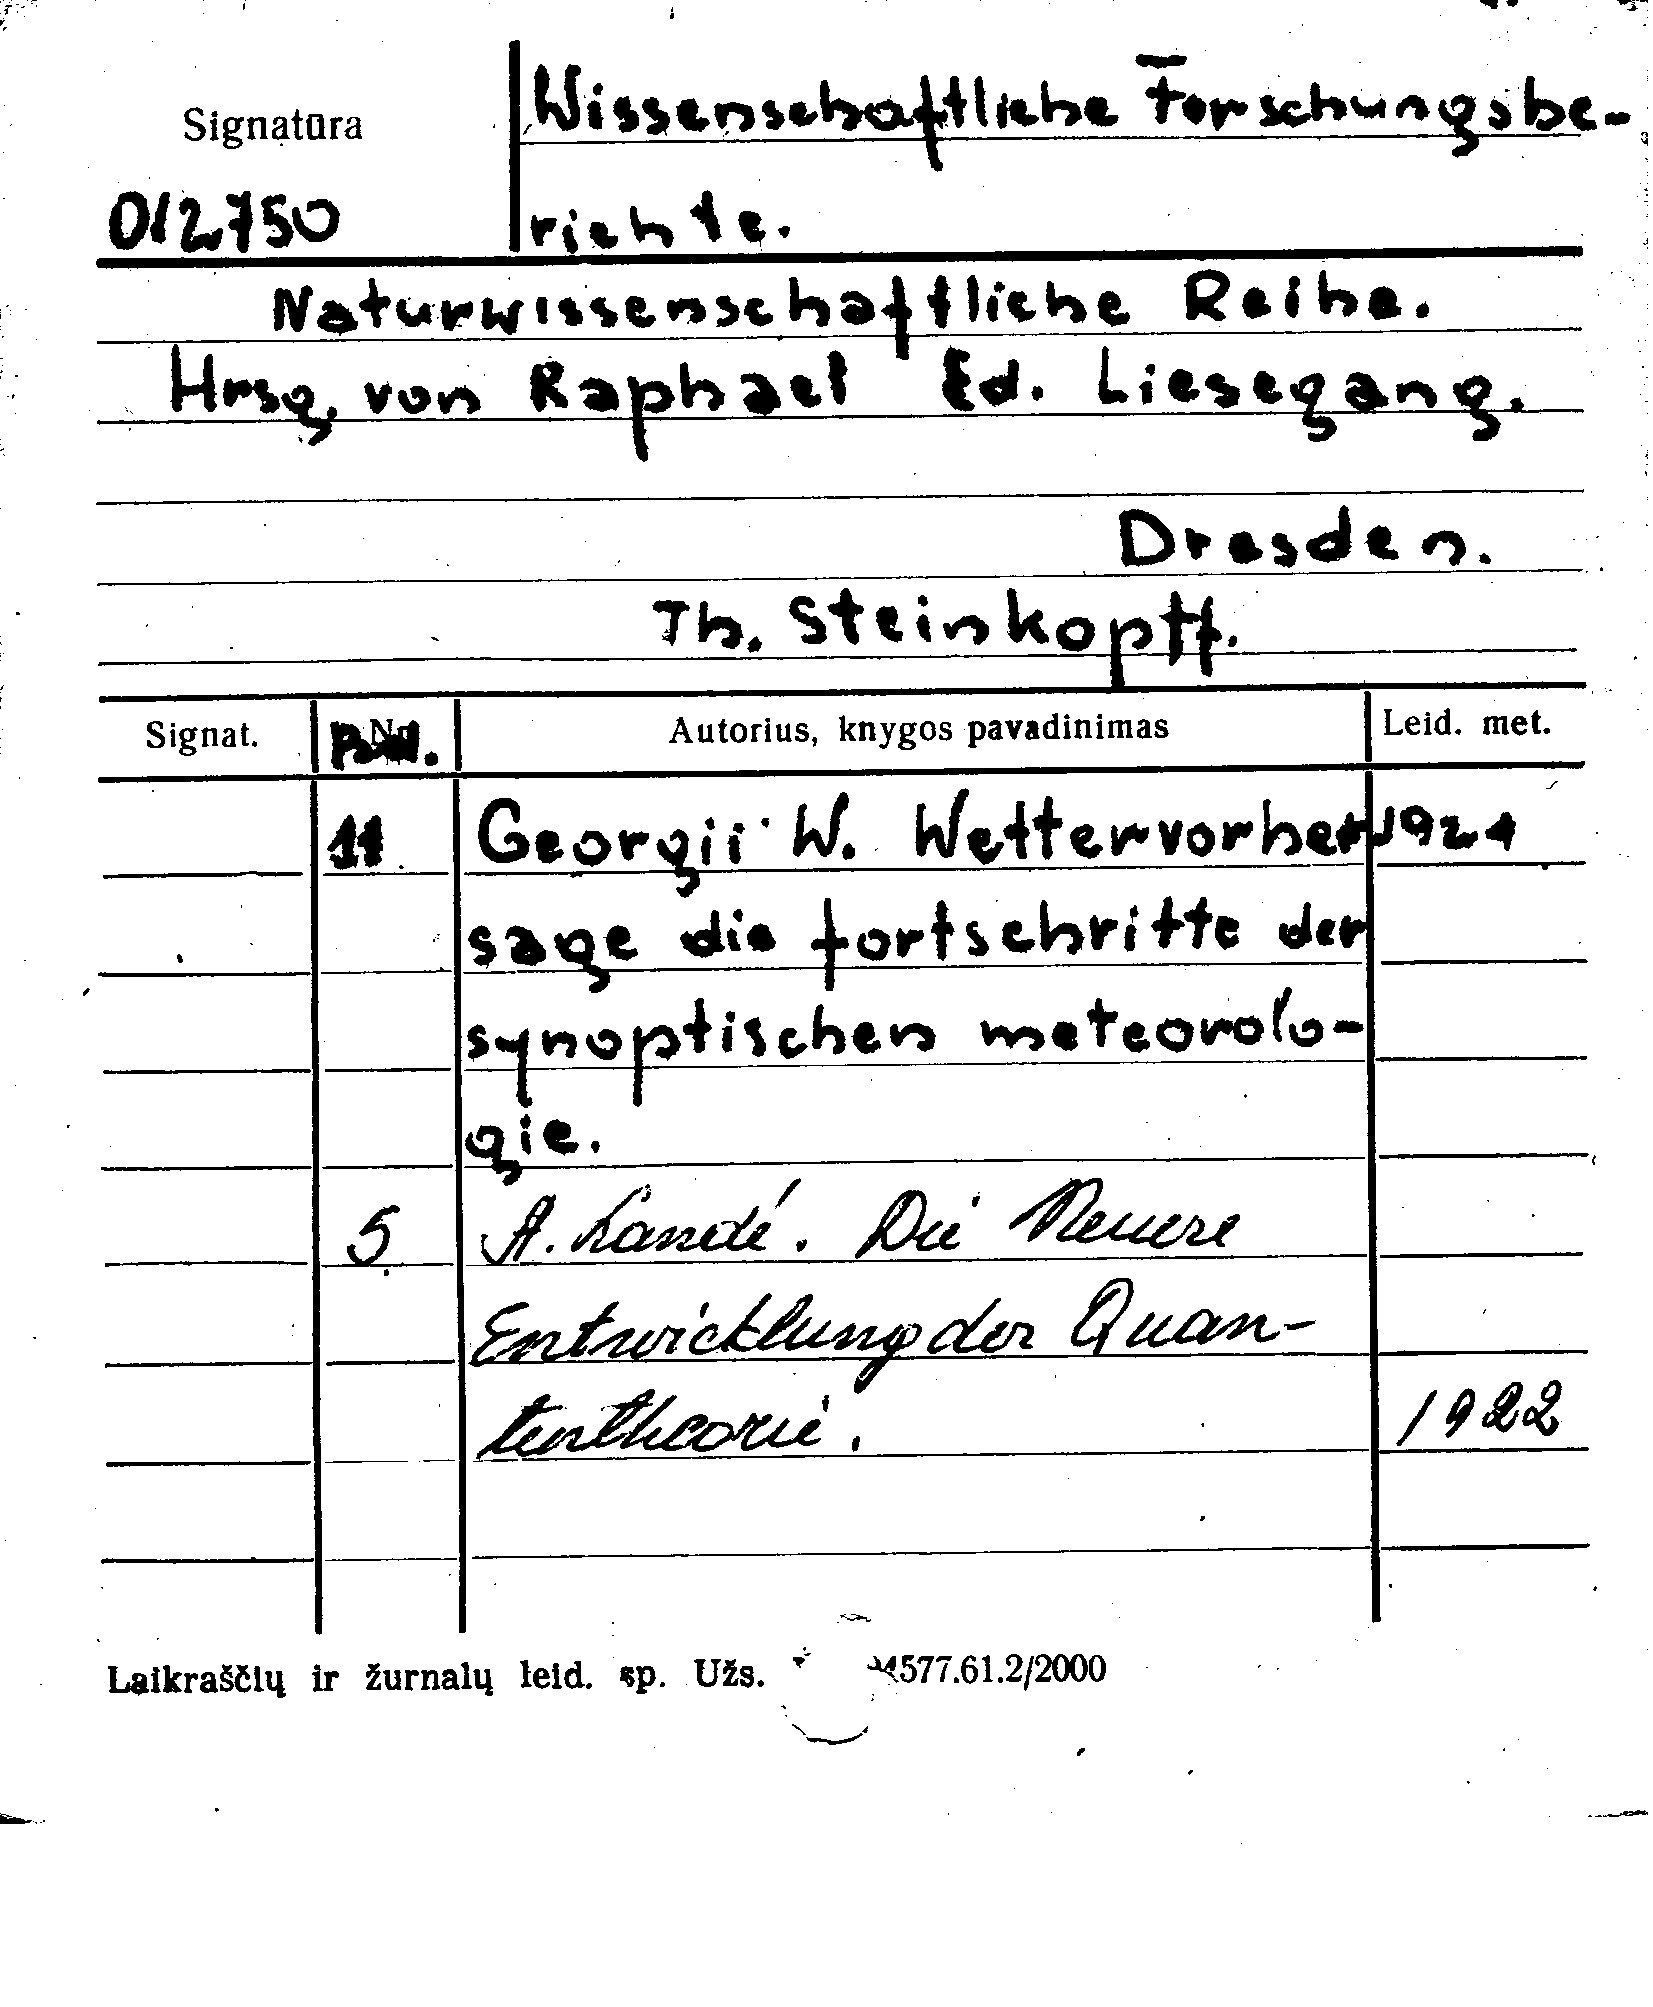 Signatūra
Wissenschaftliche Forschungsbe-
012750
richte.
Naturwissenschaftliche Reihe.
Hrsg. von Raphael Ed. Liesegang.
Dresden.
Th. Steinkopff.
Signat.
Autorius, knygos pavadinimas
Leid. met.
11 Georgii W. Wettervorher 1924
sage die fortschritte der
synoptischen meteorolo-
gie.
5 A. Landé. Die Neuere
Entwicklung der Quan-
tentheorie. 1922
Laikraščių ir žurnalų leid. sp. Užs. 4577.61.2/2000